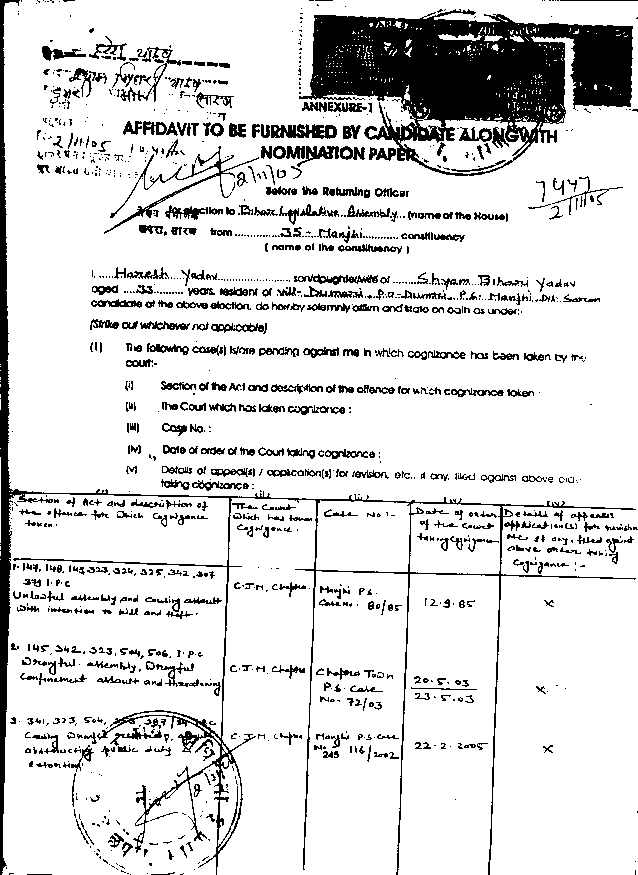 हरेश यादव
श्याम बिहारी यादव
डुमरी
सारण
2/11/05
ANNEXURE-1
AFFIDAVIT TO BE FURNISHED BY CANDIDATE ALONGWITH
NOMINATION PAPER
2/11/05
Before the Returning Officer
7477
2/11/05
for election to Bihar Legislative Assembly (name of the House)
छपरा, सारण from 35 - Manjhi constituency
( name of the constituency )
I Haresh Yadav son/daughter/wife of Shyam Bihari Yadav
aged 33 years, resident of Vill- Dumari P.O- Dumari P.S. Manjhi Dist. Saran
candidate at the above election, do hereby solemnly affirm and state on oath as under:-
(Strike out whichever not applicable)
(1) The following case(s) is/are pending against me in which cognizance has been taken by the
court:-
(i) Section of the Act and description of the offence for which cognizance taken :
(ii) The Court which has taken cognizance :
(iii) Case No. :
(iv) Date of order of the Court taking cognizance ;
(v) Details of appeal(s) / application(s) for revision, etc., if any, filed against above order
taking cognizance :
Section of Act and description of the offence for which Cognizance taken.
The Court which has taken Cognizance.
Case No:-
Date of order of the Court taking Cognizance
Details of appeals application(s) for revision etc. if any, filed against above order taking Cognizance :-
1. 147, 148, 149, 323, 324, 325, 342, 307
379 I.P.C
Unlawful assembly and Causing assault
with intention to kill and theft.
C.J.M, Chapra
Manjhi P.S.
Case No. 80/85
12.9.85
×
2. 145, 342, 323, 504, 506, I.P.C
Wrongful assembly, Wrongful
Confinement assault and threatening
C.J.M, Chapra
Chapra Town
P.S. Case
No- 72/03
20.5.03
23.5.03
×
3. 341, 323, 504, 387/34 I.P.C
Causing
obstructing public duty &
extortion
C.J.M, Chapra
Manjhi P.S. Case
No 116/2002
245
22.2.2005
×